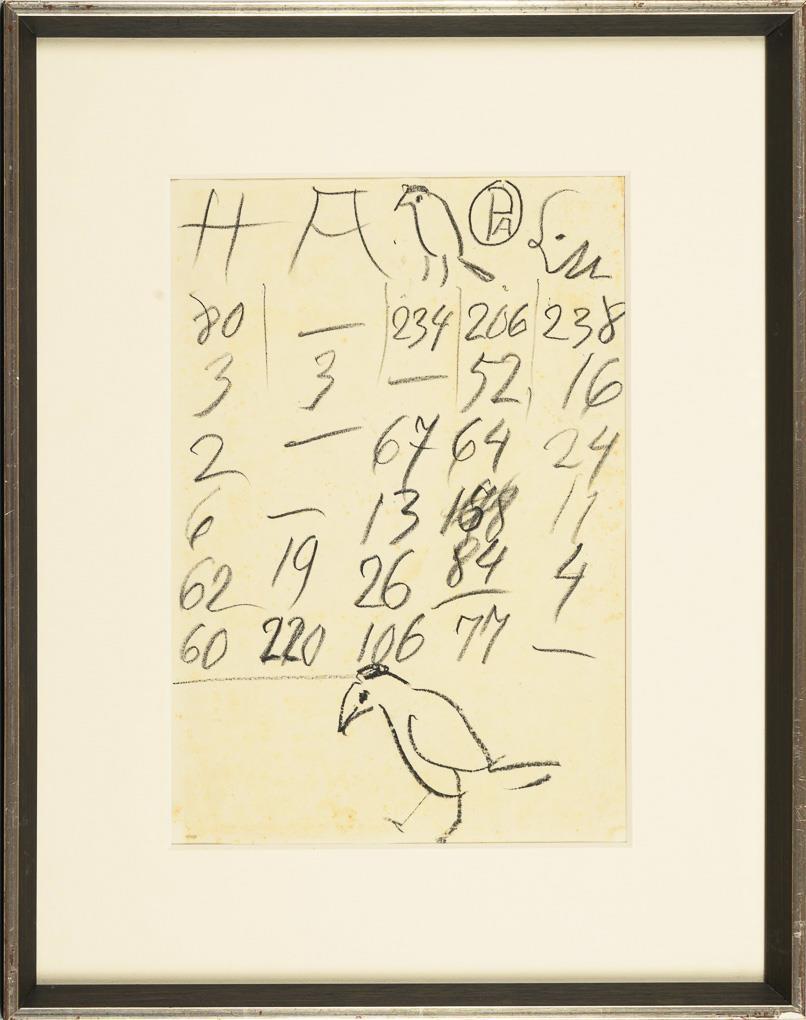 H A PA Lin
80 — 234 206 238
3 3 — 52 16
2 — 67 64 24
6 — 13 168 11
62 19 26 84 4
60 220 106 77 —